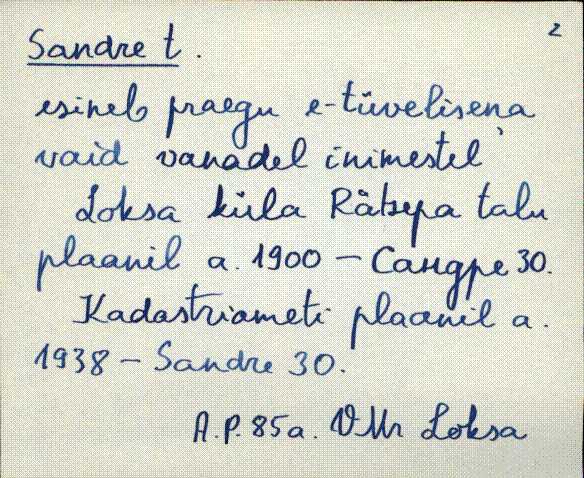 2
Sandre t.
esineb praegu e-tüvelisena
vaid vanadel inimestel
Loksa küla Rätsepa talu
plaanil a. 1900 – Сандре 30.
Kadastriameti plaanil a.
1938 – Sandre 30.
A.P. 85a. VMr Loksa